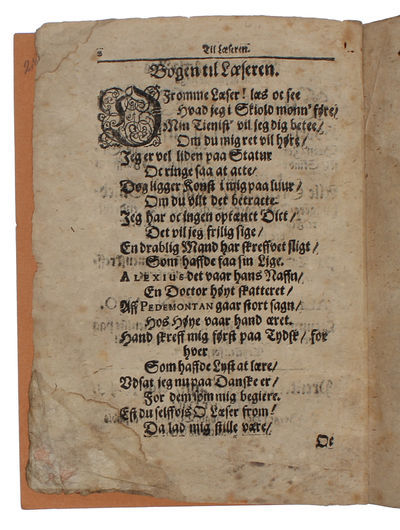 Til Læseren.
Bogen til Læseren.
O Fromme Læser! læs oc see
Hvad jeg i Skiold monn' føre/
Min Tienist' vil jeg dig betee/
Om du mig ret vil høre/
Jeg er vel liden paa Statur
Oc ringe saa at acte/
Dog ligger Konst i mig paa luur/
Om du vilt det betracte.
Jeg har oc ingen optænct Dict/
Det vil jeg frilig sige/
En drablig Mand har skreffvet sligt/
Som haffde faa sin Lige.
ALEXIUS det vaar hans Naffn/
En Doctor høyt skatteret/
Aff PEDEMONTAN gaar stort sagn/
Hos Høye vaar hand æret.
Hand skreff mig først paa Tydsk/ for
hver
Som haffde Lyst at lære/
Vdsat jeg nu paa Danske er/
For dem som mig begiere.
Est du selffvijs O Læser from!
Da lad mig stille være/
Oc